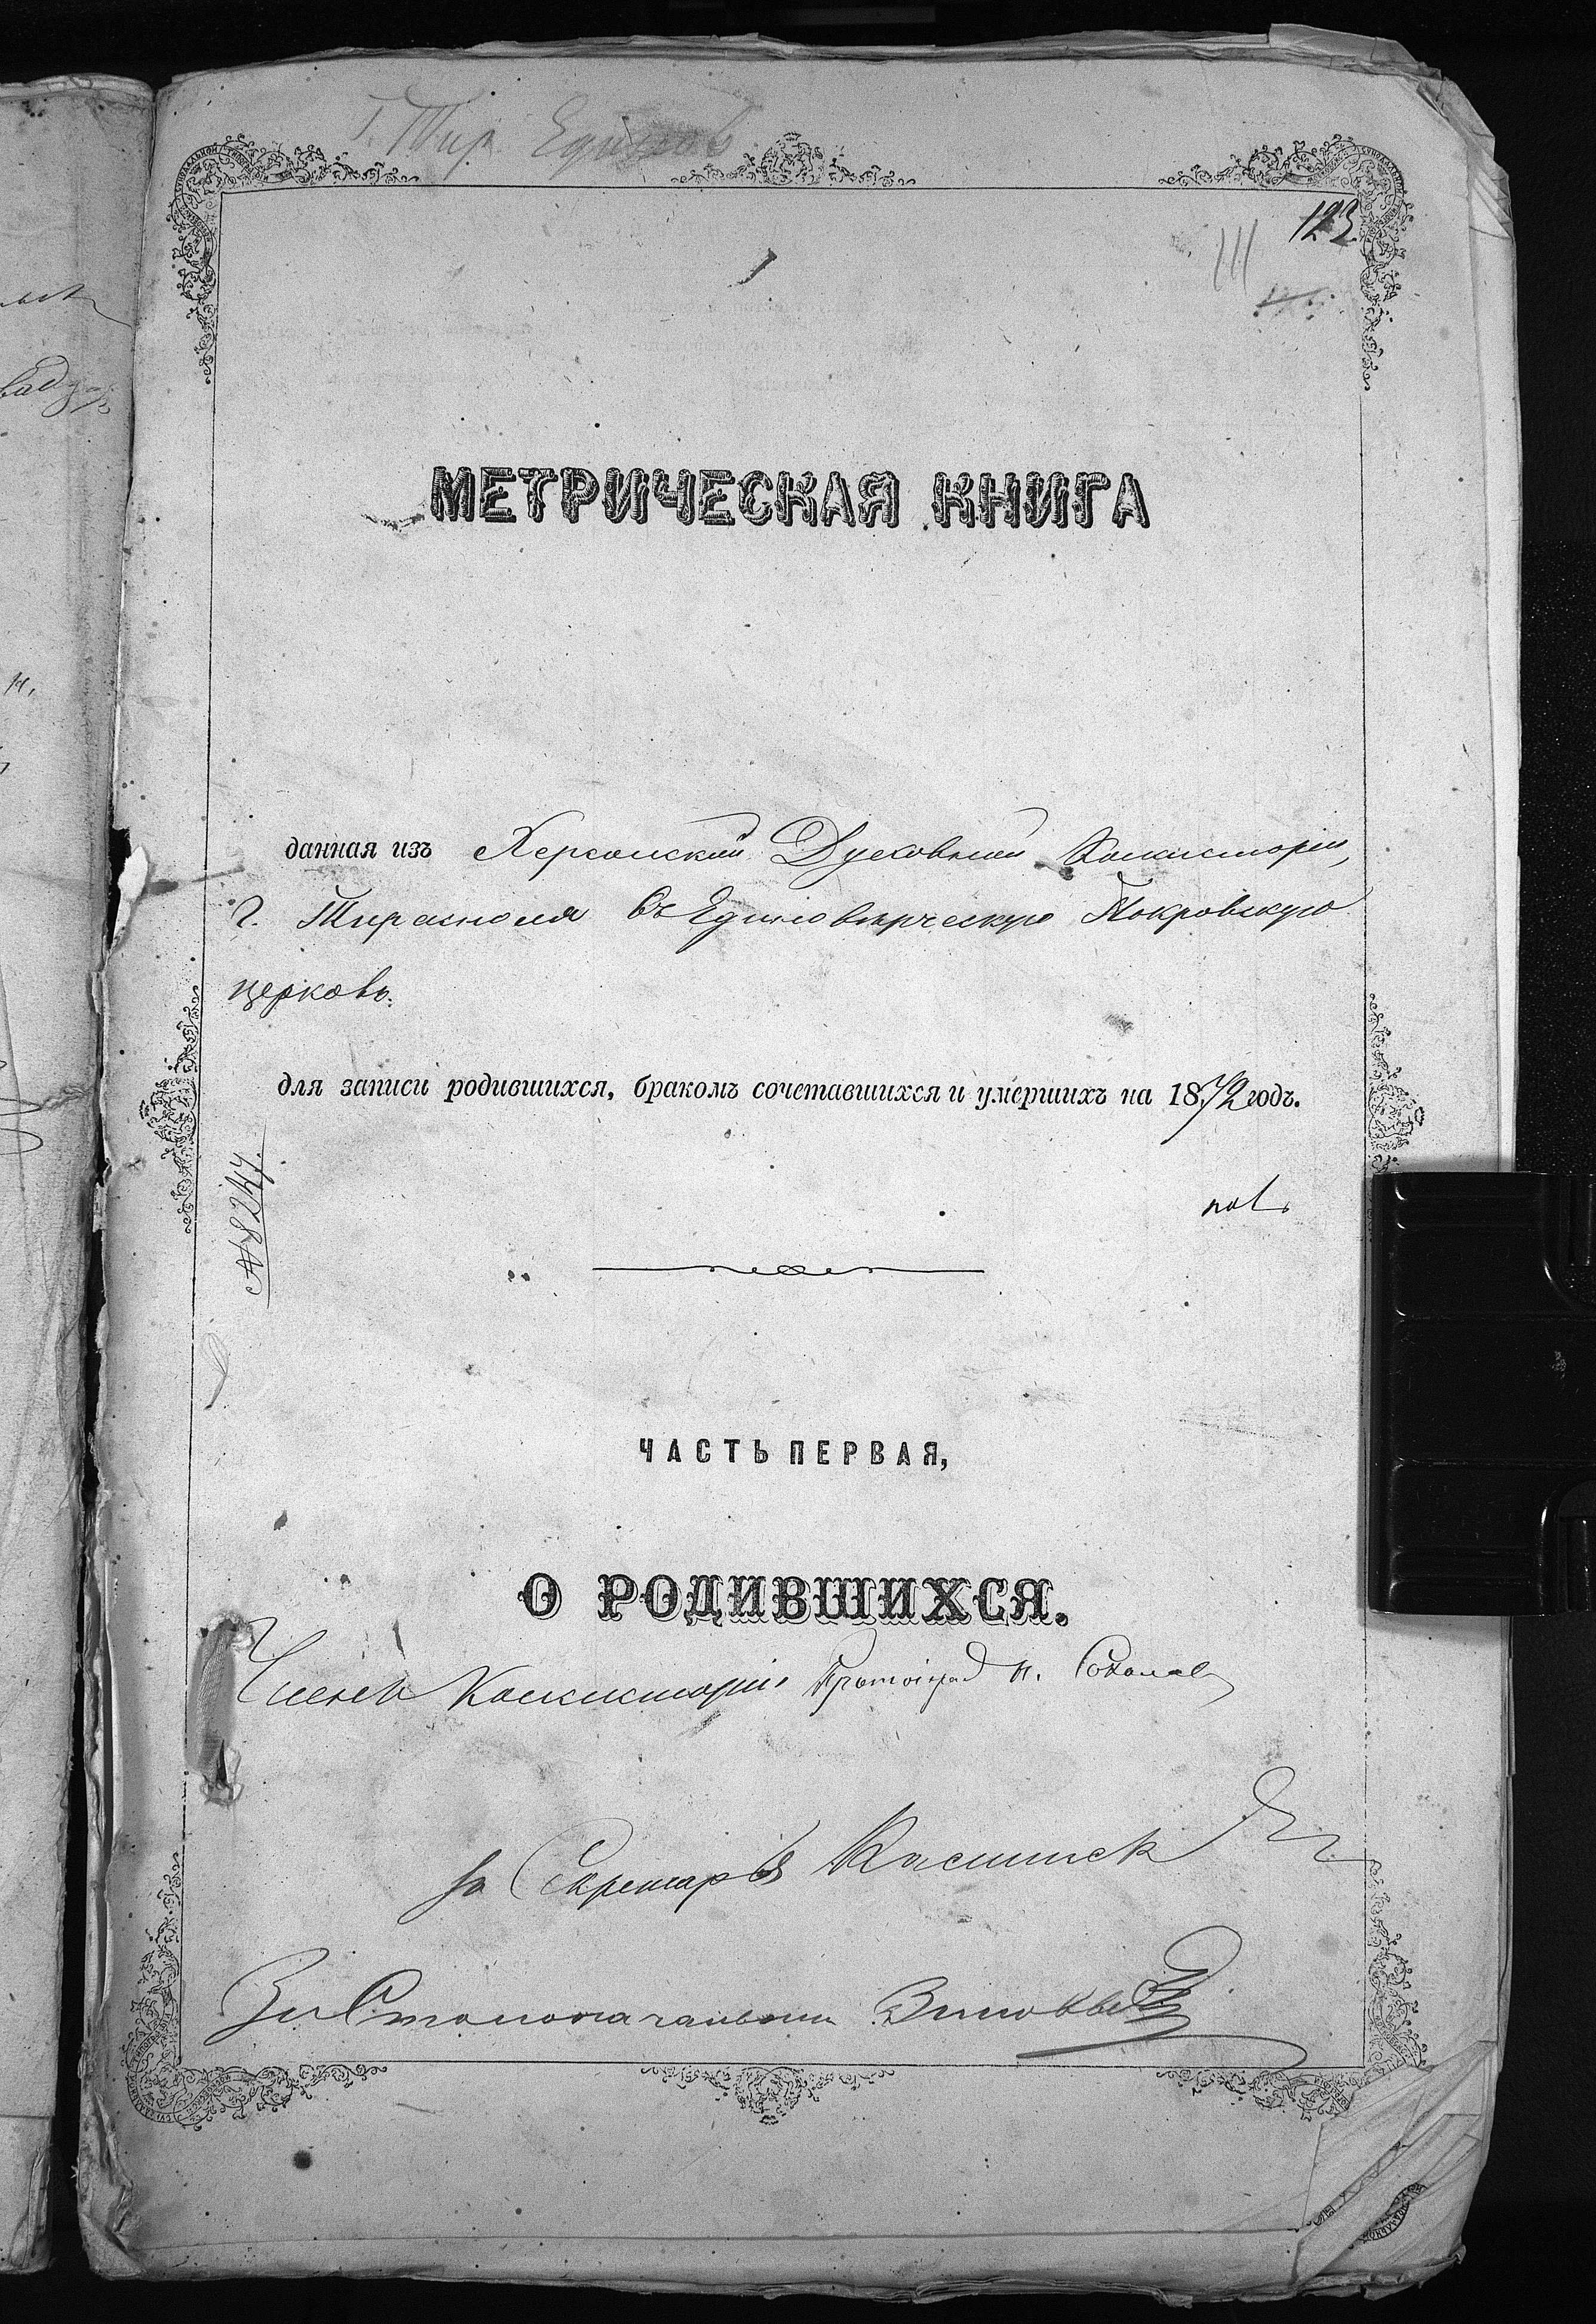 Г. Тир. Единов
123
111
МЕТРИЧЕСКАЯ КНИГА
данная изъ Херсонской Духовной Консисторіи,
г. Тирасполя въ Единовѣрческую Покровскую
церковь.
для записи родившихся, бракомъ сочетавшихся и умершихъ на 1872 годъ.
№ 8247.
ЧАСТЬ ПЕРВАЯ,
О РОДИВШИХСЯ.
Членъ Консисторіи Протоіерей Н. Соколовъ
за Секретаря
За Столоначальника Зиновьев